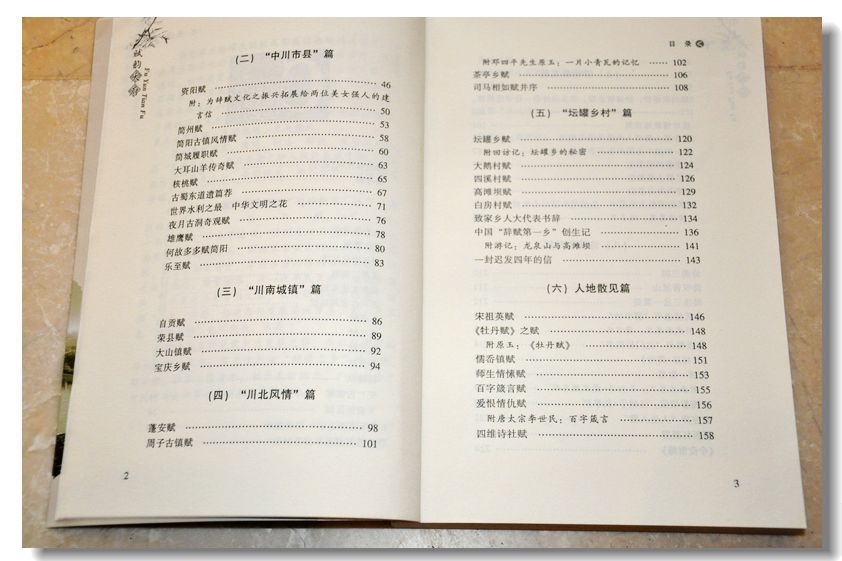 赋韵天府
Fu Yun Tian Fu
（二）“中川市县”篇
资阳赋 46
附：为辞赋文化之振兴拓展给两位美女强人的建
言信 50
简州赋 53
简阳古镇风情赋 58
简城履职赋 60
大耳山羊传奇赋 63
核桃赋 65
古蜀东道遗篇荐 67
世界水利之最 中华文明之花 71
夜月古洞奇观赋 76
雄鹰赋 78
何故多多赋简阳 80
乐至赋 83
（三）“川南城镇”篇
自贡赋 86
荣县赋 89
大山镇赋 92
宝庆乡赋 94
（四）“川北风情”篇
蓬安赋 98
周子古镇赋 101
2
目 录
附邓四平先生原玉：一片小青瓦的记忆 102
茶亭乡赋 106
司马相如赋并序 108
（五）“坛罐乡村”篇
坛罐乡赋 120
附回访记：坛罐乡的秘密 122
大鹅村赋 124
四溪村赋 126
高滩坝赋 129
白房村赋 132
致家乡人大代表书辞 134
中国“辞赋第一乡”创生记 136
附游记：龙泉山与高滩坝 141
一封迟发四年的信 143
（六）人地散见篇
宋祖英赋 146
《牡丹赋》之赋 148
附原玉：《牡丹赋》 148
儒岙镇赋 151
师生情愫赋 153
百字箴言赋 155
爱恨情仇赋 156
附唐太宗李世民：百字箴言 157
四维诗社赋 158
3